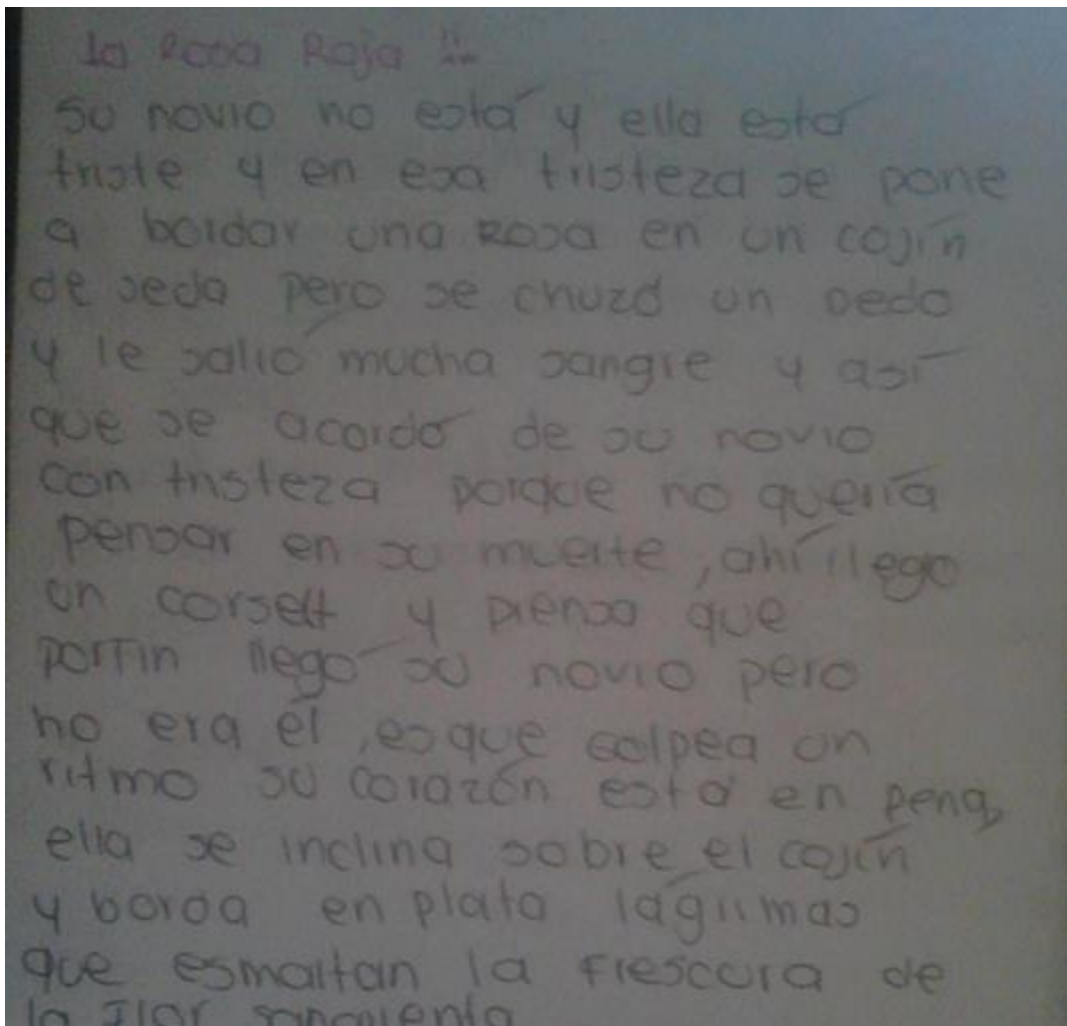 La Rosa Roja !!
Su novio no está y ella está
triste y en esa tristeza se pone
a bordar una Rosa en un cojín
de seda pero se chuzó un dedo
y le salió mucha sangre y así
que se acordó de su novio
con tristeza porque no quería
pensar en su muerte, ahí llego
un corselt y piensa que
porfin llegó su novio pero
no era él, es que golpea un
ritmo su corazón está en pena,
ella se inclina sobre el cojín
y borda en plata lágrimas
que esmaltan la frescura de
la Flor sangrienta